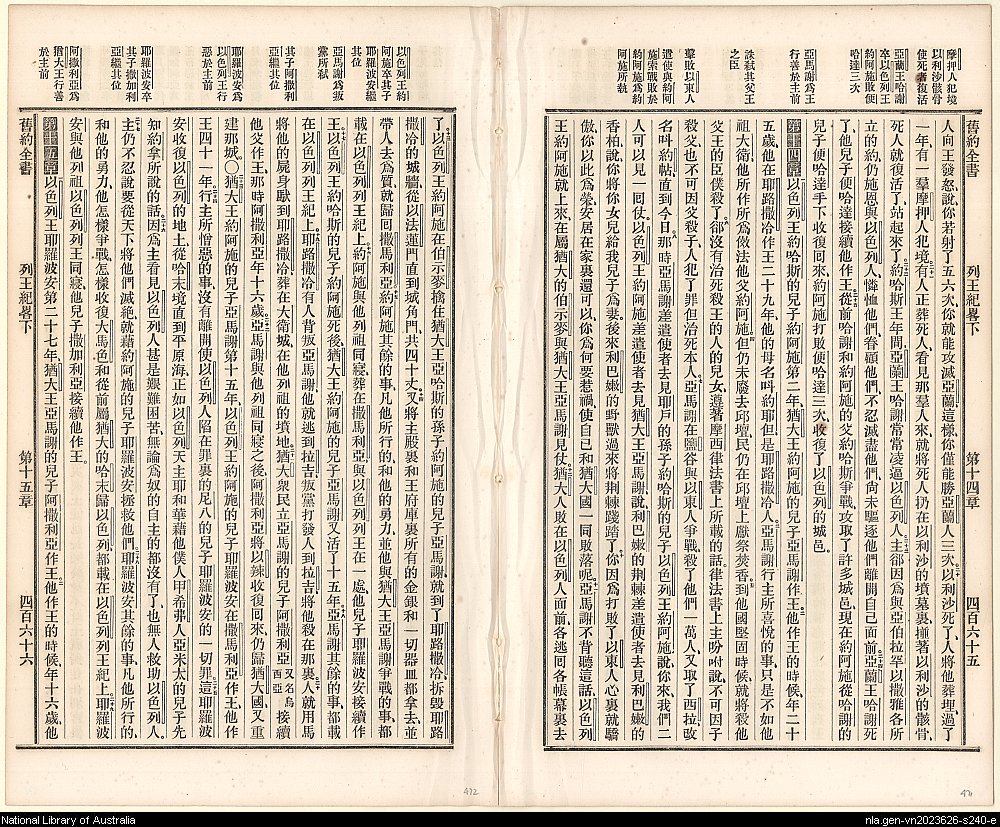 摩押人犯境
以利沙骸骨
使死者復活
亞蘭王哈謝
卒以色列王
約阿施敗便
哈達三次
亞馬謝為王
行善於主前
誅弒其父王
之臣
擊敗以東人
遣使與約阿
施索戰敗於
約阿施為約
阿施所執
舊約全書
列王紀畧下
第十四章
四百六十五
人向王發怒說你若射了五六次你就能攻滅亞蘭這樣你僅能勝亞蘭人三次以利沙死了人將他葬埋過了
一年有一羣摩押人犯境有人正葬死人看見那羣人來就將死人扔在以利沙的墳墓裏摣著以利沙的骸骨
死人就復活了站起來了約哈斯王年間亞蘭王哈謝常常凌逼以色列人主卻因為與亞伯拉罕以撒雅各所
立的約仍施恩與以色列人憐恤他們眷顧他們不忍滅盡他們尚未驅逐他們離開自己面前亞蘭王哈謝死
了他兒子便哈達接續他作王從前哈謝和約阿施的父約哈斯爭戰攻取了許多城邑現在約阿施從哈謝的
兒子便哈達手下收復囘來約阿施打敗便哈達三次收復了以色列的城邑
第十四章以色列王約哈斯的兒子約阿施第二年猶大王約阿施的兒子亞馬謝作王他作王的時候年二十
五歲他在耶路撒冷作王二十九年他的母名叫約耶但是耶路撒冷人亞馬謝行主所喜悅的事只是不如他
祖大衛他所作所為倣法他父約阿施但仍未廢去邱壇民仍在邱壇上獻祭焚香到他國堅固時候就將殺他
父王的臣僕殺了卻沒有治死殺王的人的兒女遵著摩西律法書上所載的話律法書上主吩咐說不可因子
殺父也不可因父殺子人犯了罪但治死本人亞馬謝在鹽谷與以東人爭戰殺了他們一萬人又取了西拉改
名叫約帖直到今日那時亞馬謝差遣使者去見耶戶的孫子約哈斯的兒子以色列王約阿施說你來我們二
人可以見一囘仗以色列王約阿施差遣使者去見猶大王亞馬謝說利巴嫩的荆棘差遣使者去見利巴嫩的
香柏說你將你女兒給我兒子為妻後來利巴嫩的野獸過來將荆棘踐踏了你因為打敗了以東人心裏就驕
傲你以此為榮安居在家裏還可以你為何要惹禍使自己和猶大國一同敗落呢亞馬謝不肯聽這話以色列
王約阿施就上來在屬猶大的伯示麥與猶大王亞馬謝見仗猶大人敗在以色列人面前各逃囘各帳幕裏去
以色列王約
阿施卒其子
耶羅波安繼
其位
亞馬謝為叛
黨所弒
其子阿撒利
亞繼其位
耶羅波安為
以色列王行
惡於主前
耶羅波安卒
其子撒加利
亞繼其位
阿撒利亞為
猶大王行善
於主前
了以色列王約阿施在伯示麥擒住猶大王亞哈斯的孫子約阿施的兒子亞馬謝就到了耶路撒冷拆毀耶路
撒冷的城牆從以法蓮門直到城角門共四十丈又將主殿裏和王府庫裏所有的金銀和一切器皿都拿去並
帶人去為質就歸囘撒馬利亞約阿施其餘的事凡他所行的和他的勇力並他與猶大王亞馬謝爭戰的事都
載在以色列列王紀上約阿施與他列祖同寢葬在撒馬利亞與以色列列王在一處他兒子耶羅波安接續作
王以色列王約哈斯的兒子約阿施死後猶大王約阿施的兒子亞馬謝又活了十五年亞馬謝其餘的事都載
在以色列列王紀上耶路撒冷有人背叛亞馬謝他就逃到拉吉叛黨打發人到拉吉將他殺在那裏人就用馬
將他的屍身馱到耶路撒冷葬在大衛城在他列祖的墳地猶大衆民立亞馬謝的兒子阿撒利亞又名烏西亞接續
他父作王那時阿撒利亞年十六歲亞馬謝與他列祖同寢之後阿撒利亞將以辣收復囘來仍歸猶大國又重
建那城〇猶大王約阿施的兒子亞馬謝第十五年以色列王約阿施的兒子耶羅波安在撒馬利亞作王他作
王四十一年行主所憎惡的事沒有離開使以色列人陷在罪裏的尼八的兒子耶羅波安的一切罪這耶羅波
安收復以色列的地土從哈末境直到平原海正如以色列天主耶和華藉他僕人甲希弗人亞米太的兒子先
知約拿所說的話因為主看見以色列人甚是艱難困苦無論為奴的自主的都沒有了也無人救助以色列人
主仍不忍說要從天下將他們滅絕就藉約阿施的兒子耶羅波安拯救他們耶羅波安其餘的事凡他所行的
和他的勇力他怎樣爭戰怎樣收復大馬色和從前屬猶大的哈末歸以色列都載在以色列列王紀上耶羅波
安與他列祖以色列列王同寢他兒子撒加利亞接續他作王
第十五章以色列王耶羅波安第二十七年猶大王亞馬謝的兒子阿撒利亞作王他作王的時候年十六歲他
舊約全書
列王紀畧下
第十五章
四百六十六
472
471
National Library of Australia
nla.gen-vn2023626-s240-e